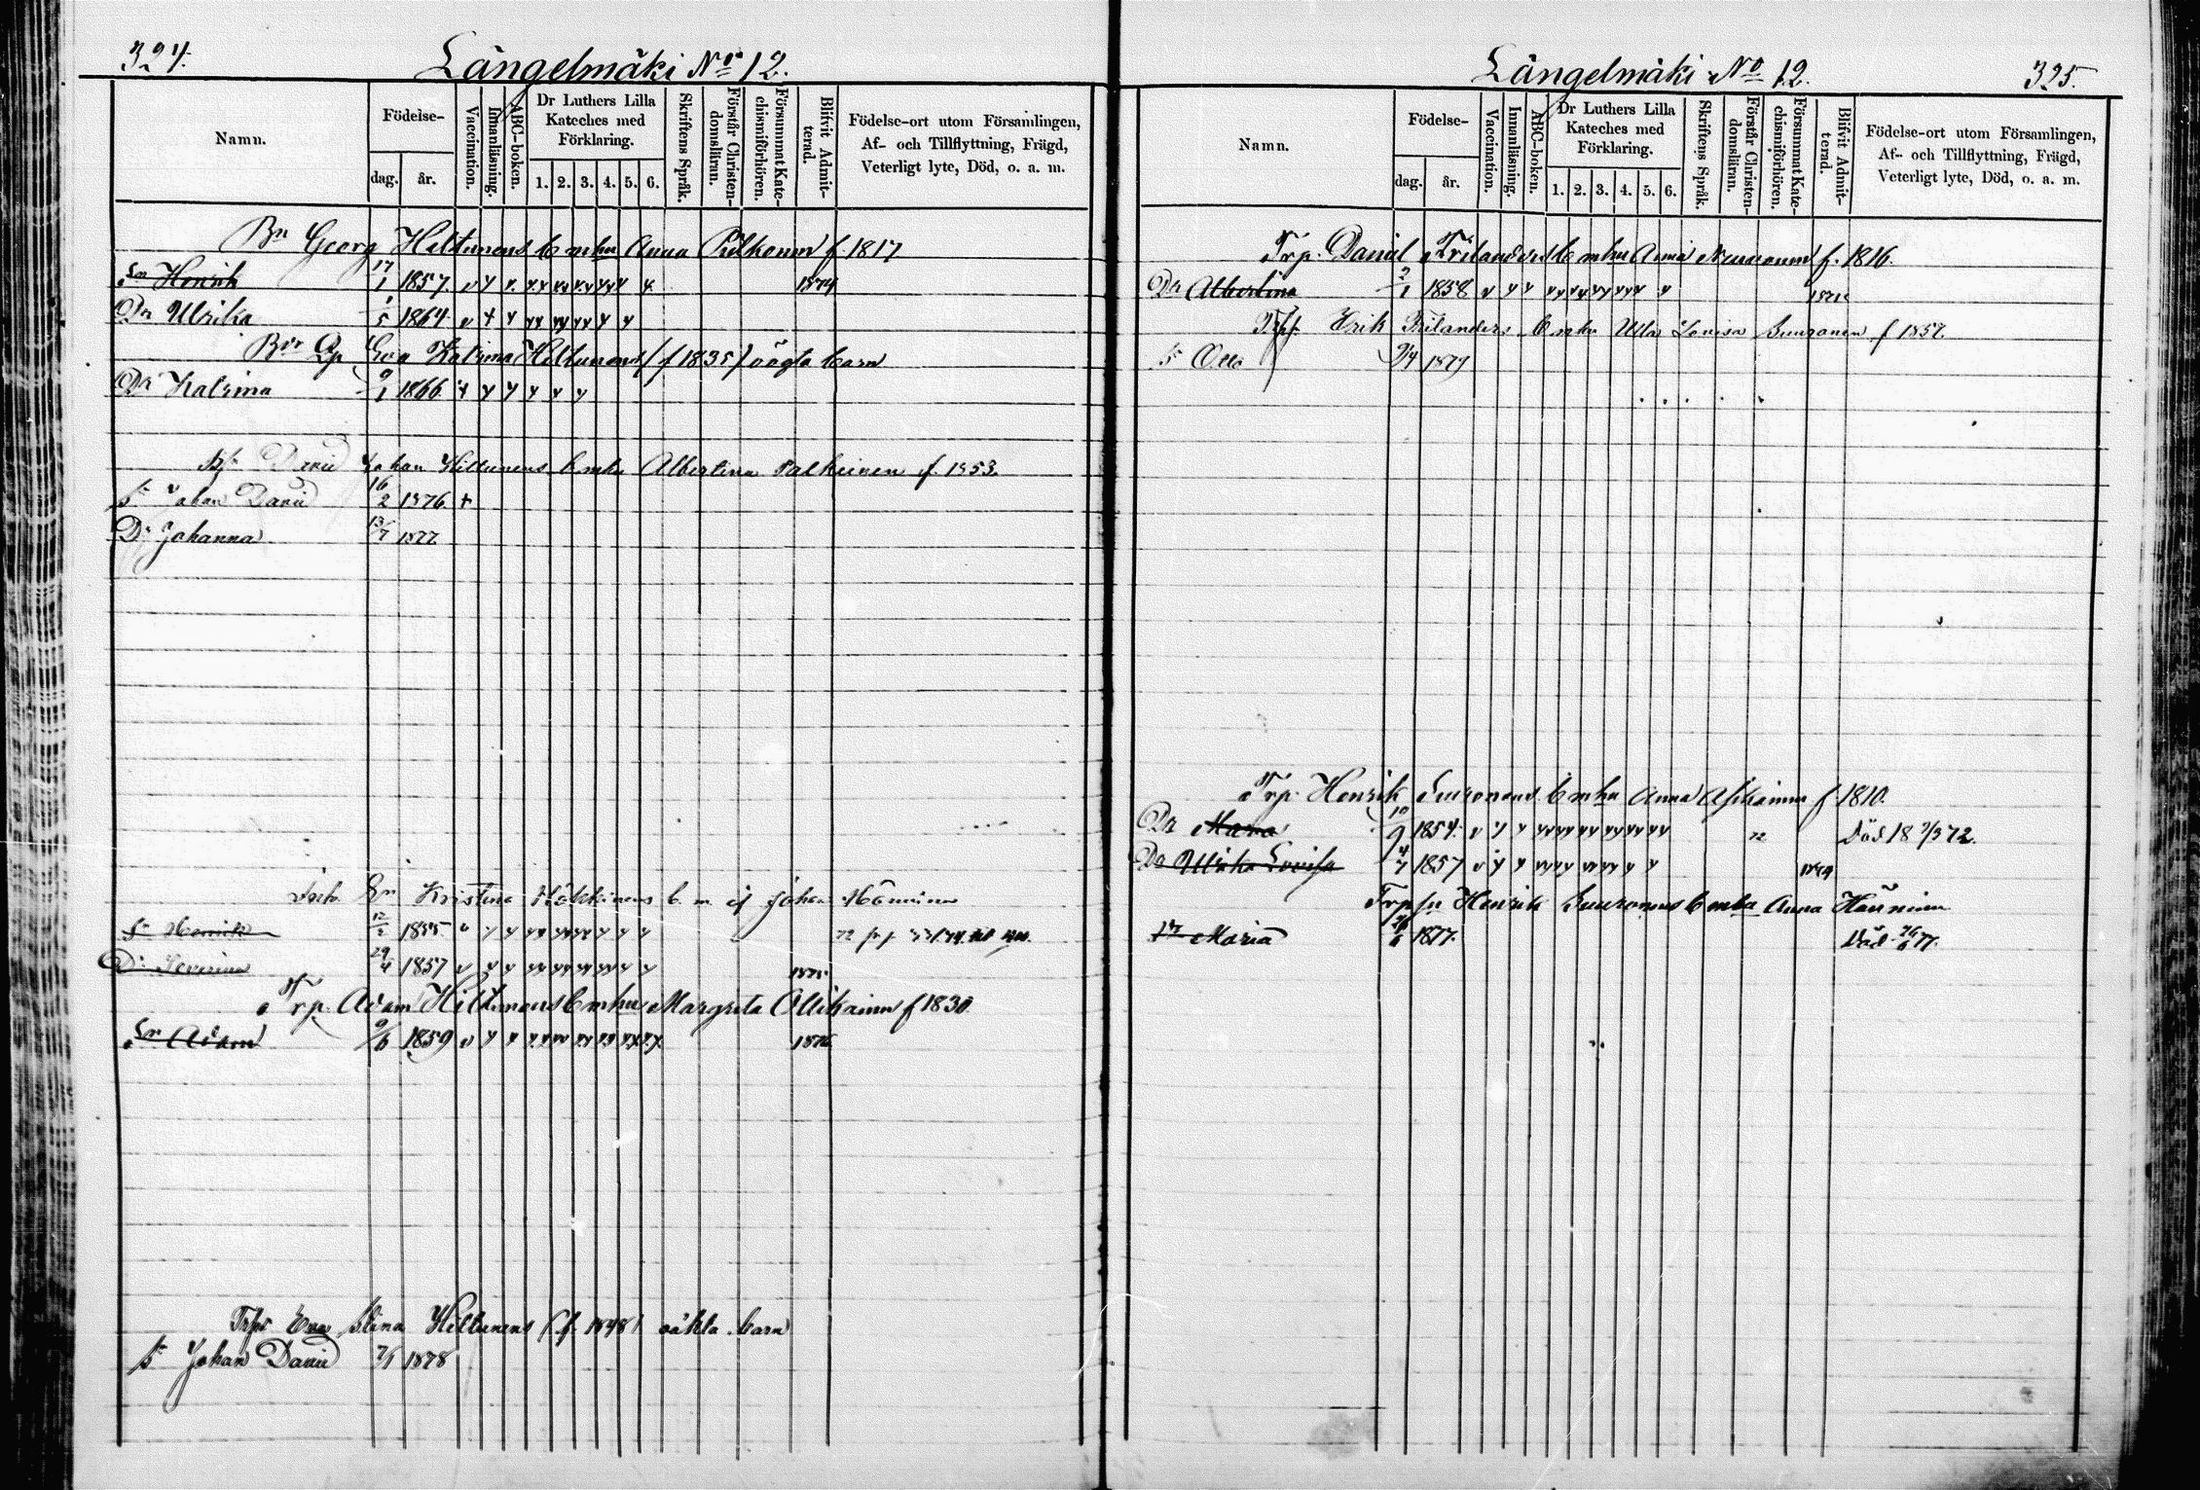 324.
Längelmäki No 12.
Namn.
Födelse-
dag.
år.
Vaccination.
Innanläsning.
ABC-boken.
Dr Luthers Lilla
Kateches med
Förklaring.
1. 2. 3. 4. 5. 6.
Skriftens Språk.
Förstår Christen-
domsläran.
Försummat Kate-
chismiförhören.
Blifvit Admit-
terad.
Födelse-ort utom Församlingen,
Af- och Tillflyttning, Frägd,
Veterligt lyte, Död, o. a. m.
Bn Georg Hiltunens b mhu Anna f. 1817
Sn Henrik 17/1 1857. 1874
Dr Ulrika 1/5 1864
Eva Katrina Hiltunens (f 1835) oägta barn
Dr Katrina 9/1 1866
David Johan Hiltunens b mhu Albertina f. 1853.
Sn Johan David 16/2 1876
Dr Johanna 13/7 1877
Kristina b. m. Johan Hänninen
Sn Henrik 12/2 1855
Dr Severina 29/4 1857 1875
Trp. Adam Hiltunens b mhu Margreta Ollikainen f 1830.
Sn Adam 9/6 1859 1876
Eva Stina Hiltunens (f. 1848) oäkta barn
Sn Johan David 7/1 1878
Längelmäki No 12.
325.
Namn.
Födelse-
dag.
år.
Vaccination.
Innanläsning.
ABC-boken.
Dr Luthers Lilla
Kateches med
Förklaring.
1. 2. 3. 4. 5. 6.
Skriftens Språk.
Förstår Christen-
domsläran.
Försummat Kate-
chismiförhören.
Blifvit Admit-
terad.
Födelse-ort utom Församlingen,
Af- och Tillflyttning, Frägd,
Veterligt lyte, Död, o. a. m.
Trp. Daniel Frilanders b mhu Anna f. 1816.
Dr Albertina 2/1 1858
Erik Frilanders b mhu Ulla Lovisa Suuronen f 1857.
Sn Otto 9/4 1879
Trp. Henrik Suuronens b mhu Anna f. 1810.
Dr Maria 10/9 1854 72 Död 18 7/3 72.
Dr Ulrika Lovisa 4/7 1857
Henrik Suuronens b mhu Anna Hänninen
Maria 1877. Död 77.